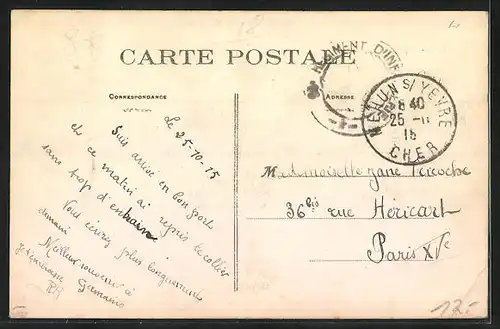 CARTE POSTALE
RÉGIMENT D'INF
CORRESPONDANCE
ADRESSE
MEHUN S/ YEVRE
8 40
25 - 11
15
CHER
Le 25-10-15
Suis arrivé en bon port
et ce matin ai repris le collier
sans trop d'entrain
Vous écrirez plus longuement
demain
Meilleur souvenir à
Mademoiselle Jane
36 bis rue Héricart
Paris XVe
12.-